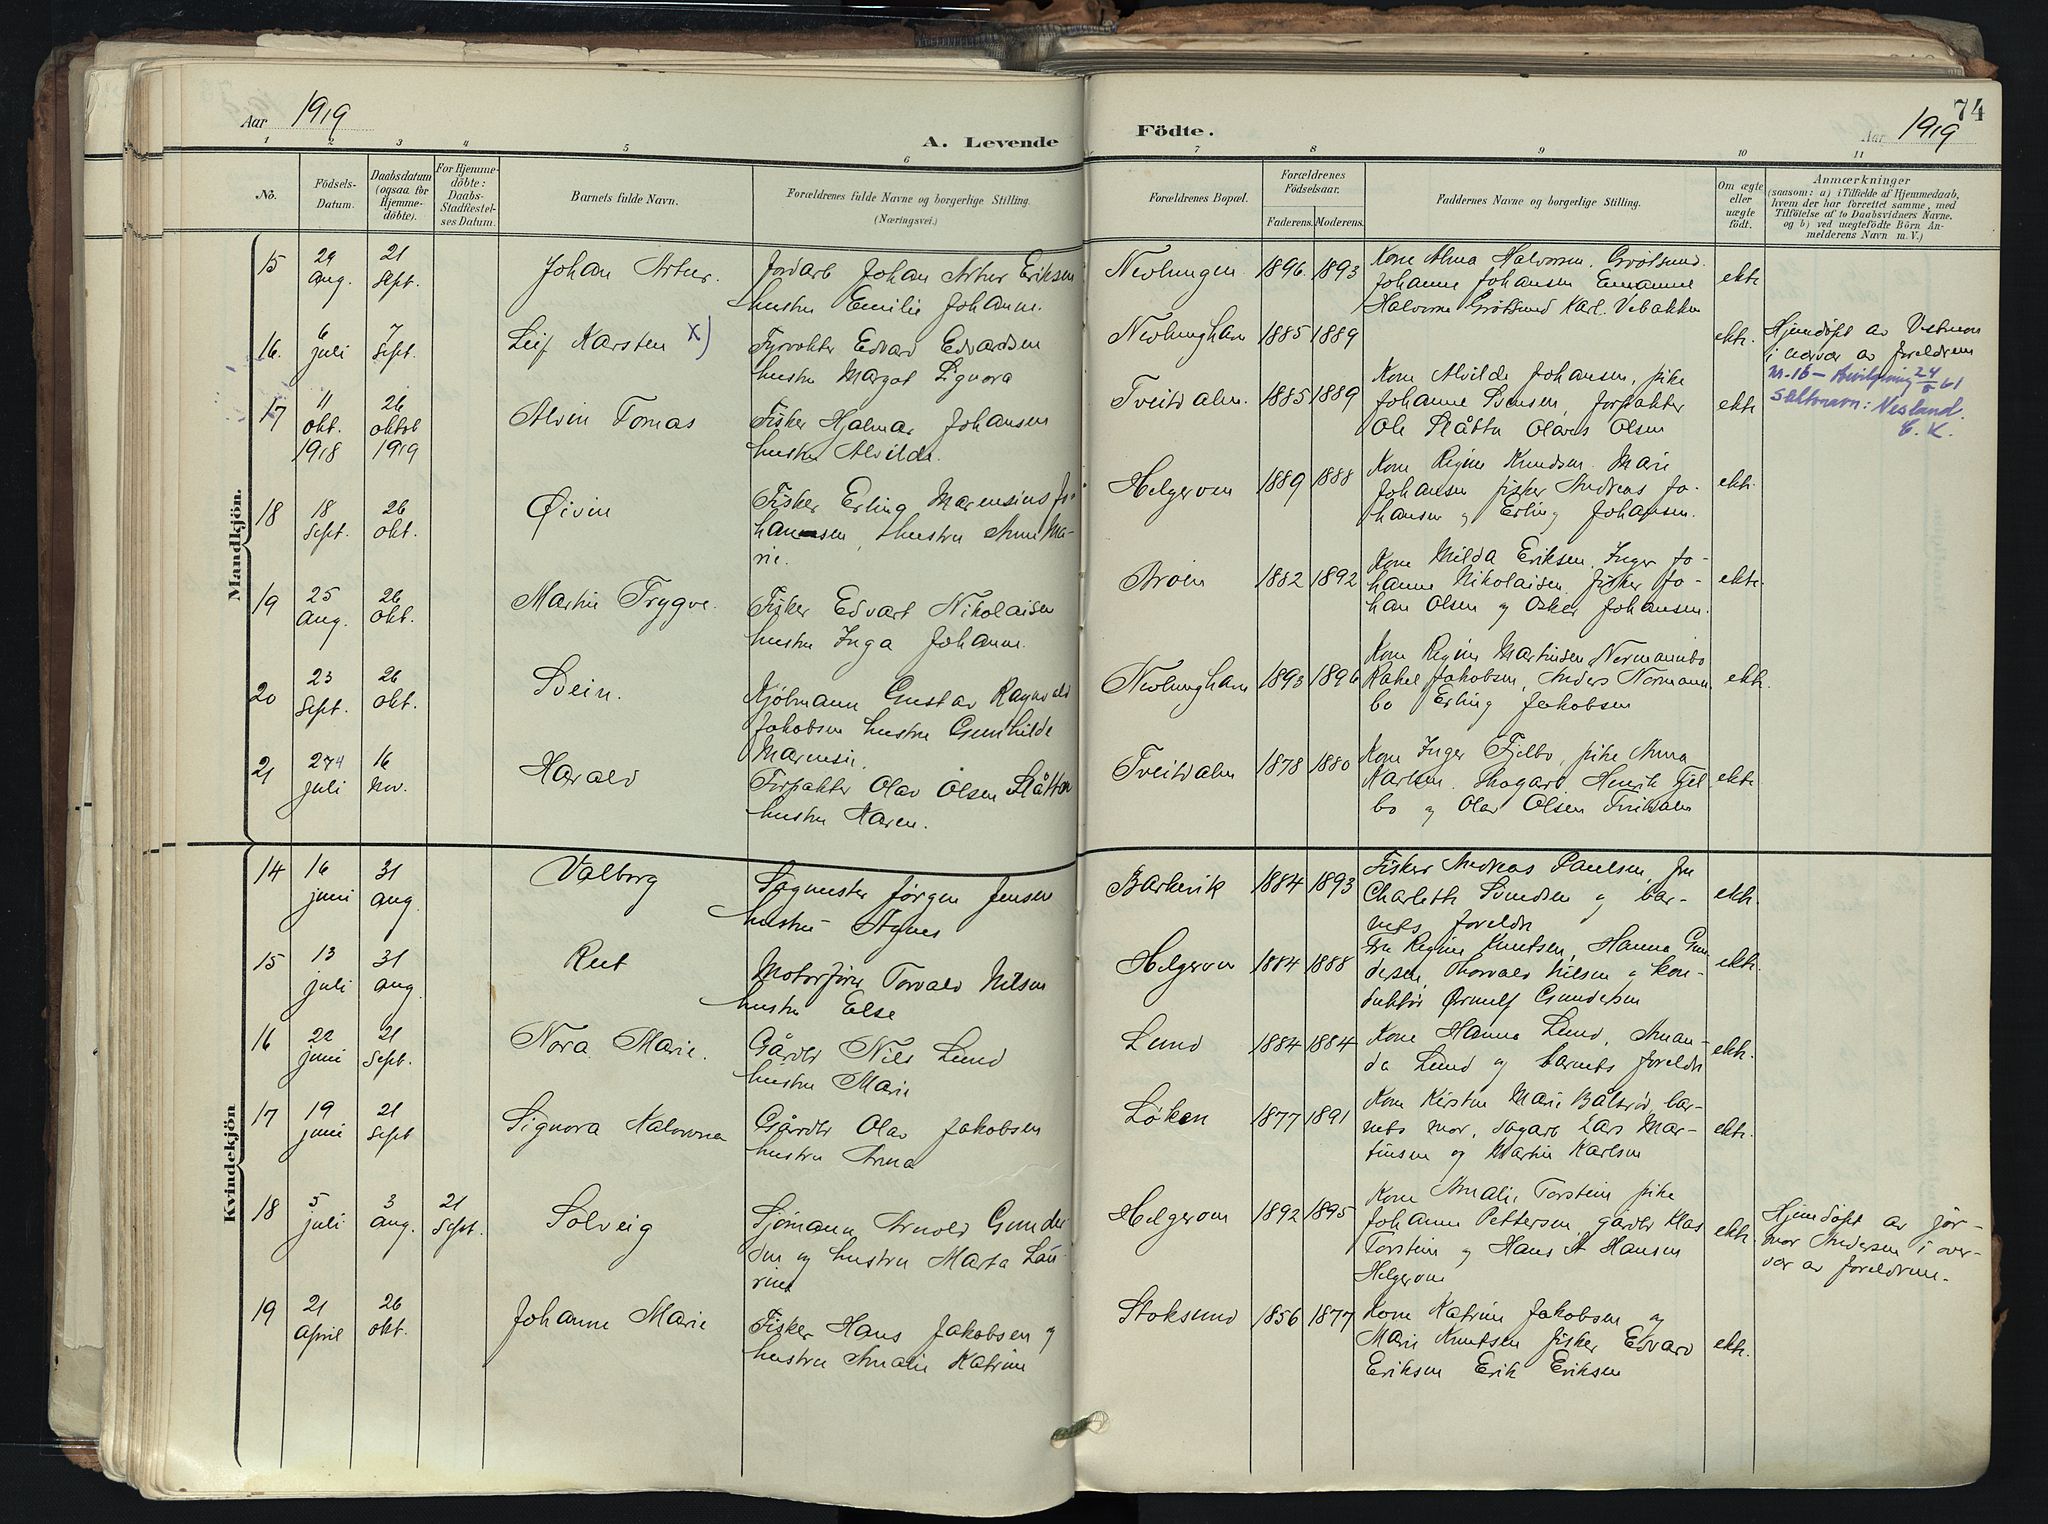 74
Aar 1919
A. Levende Födte.
Aar 1919
1 2 3 4 5 6 7 8 9 10 11
No.
Födsels-
Datum.
Daabsdatum
(ogsaa for
Hjemme-
döbte).
For Hjemme-
döbte:
Daabs-
Stadfæstel-
ses Datum.
Barnets fulde Navn.
Forældrenes fulde Navne og borgerlige Stilling.
(Næringsvei.)
Forældrenes Bopæl.
Forældrenes
Födselsaar.
Faderens. Moderens.
Faddernes Navne og borgerlige Stilling.
Om ægte
eller
uægte
födt.
Anmærkninger
(saasom: a) i Tilfælde af Hjemmedaab,
hvem der har forrettet samme, med
Tilföielse af to Daabsvidners Navne,
og b) ved uægtefödte Börn An-
melderens Navn m. V.)
Mandkjön.
15
29
aug.
21
sept.
Johan Artur.
Jordarb Johan Artur Eriksen
hustru Emilie Johanne.
Nevlungen
1896. 1893
Kone Alma Halvorsen. Grøtsund.
Johanne Johansen Emanuel
Halvorsen Grøtsund Karl. Vebakken
ekte
16.
6
juli
7
sept.
Leif Karsten x)
Fyrvokter Edvard Edvardsen
hustru Margot Signora
Nevlunghavn
1885 1889
ekte.
Hjemdøpt av Vetmoen
i nærvær av foreldrene
nr. 16 - Bevilgning 24/5 61
slektsnavn: Nesland.
E. K.
17
11
okt.
1918
26
oktob
1919
Alvin Tomas
Fisker Hjalmar Johansen
hustru Alvilde.
Tveitdalen.
1885 1889
Kone Alvilde Johansen, pike
Johanne Jensen, forpakter
Ole Slåtta Olaves Olsen
ekte
18
18
sept.
26
okt.
Øivin
Fisker Erling Marensius Jo-
hannsen, hustru Anne Ma-
rie.
Helgeroen
1889 1888
Kone Regine Knudsen. Marie
Johansen fisker Andreas Jo-
hansen og Erling Johansen.
ekte.
19
25
aug.
26
okt.
Martin Trygve.
Fisker Edvart Nikolaisen
hustru Inga Johanne.
Aroen
1882 1892
Kone Milda Eriksen, Inger Jo-
hanne Nikolaisen, fisker Jo-
han Olsen og Oskar Johansen.
ekte.
20
23
sept.
26
okt.
Svein.
Kjøbmann Gustav Ragnvald
Jakobsen hustru Gunhilde
Marensie.
Nevlunghavn
1893 1896
Kone Regine Martinsen Normannbo
Rakel Jakobsen, Anders Normann
bo Erling Jakobsen
ekte.
21
274
juli
16
nov.
Harald
Forpakter Olav Olsen Slåtten
hustru Karen.
Tveitdalen
1878 1880
Kone Inger Fjelbo, pike Anna
Karlsen. Skogarb. Henrik Fjel
bo og Olav Olsen Tveitdalen
ekte
Kvindekjön
14
16
juni
31
aug.
Valborg
Sagmester Jørgen Jensen
hustru Agnes
Barkevik
1884 1893
Fisker Andreas Paulsen, fru
Charlotte Svendsen og bar-
nets foreldre
ekte.
15
13
juli
31
aug.
Rut
Motorfører Torvald Nilsen
hustru Else
Helgeroen
1884 1888
Fru Regine Knutsen, Hanna Gun
dersen, Thorvald Nilsen og kon-
duktør Ørnulf Gundersen
ekte.
16
22
juni
21
sept.
Nora Marie.
Gårdbr Nils Lund
hustru Marie
Lund
1884 1884
Kone Hanna Lund, Aman-
da Lund og barnets foreldre
ekte.
17
19
juni
21
sept
Signora Kalovna
Gårdbr Olav Jakobsen
hustru Anna
Løken
1877 1891
Kone Kirsten Marie Bålsrød, bar-
nets mor, dagarb Lars Mar-
tinsen og Martin Karlsen
ekte.
18
5
juli
3
aug.
21
sept.
Solveig
Sjømann Arnold Gunder
sen og hustru Marta Lau-
rine
Helgeroen
1892 1895
Kone Amalie Torstein pike
Johanne Pettersen, gårdbr Klas
Torstein og Hans A Hansen
Helgeroen
ekte.
Hjemdøpt av jor-
mor Andersen i over-
vær av foreldrene.
19
21
April
26
okt.
Johanne Marie
Fisker Hans Jakobsen og
hustru Amalie Katrine
Stoksund
1856 1877
Kone Katrine Jakobsen og
Marie Knutsen fisker Edvard
Eriksen Erik Eriksen
ekte.